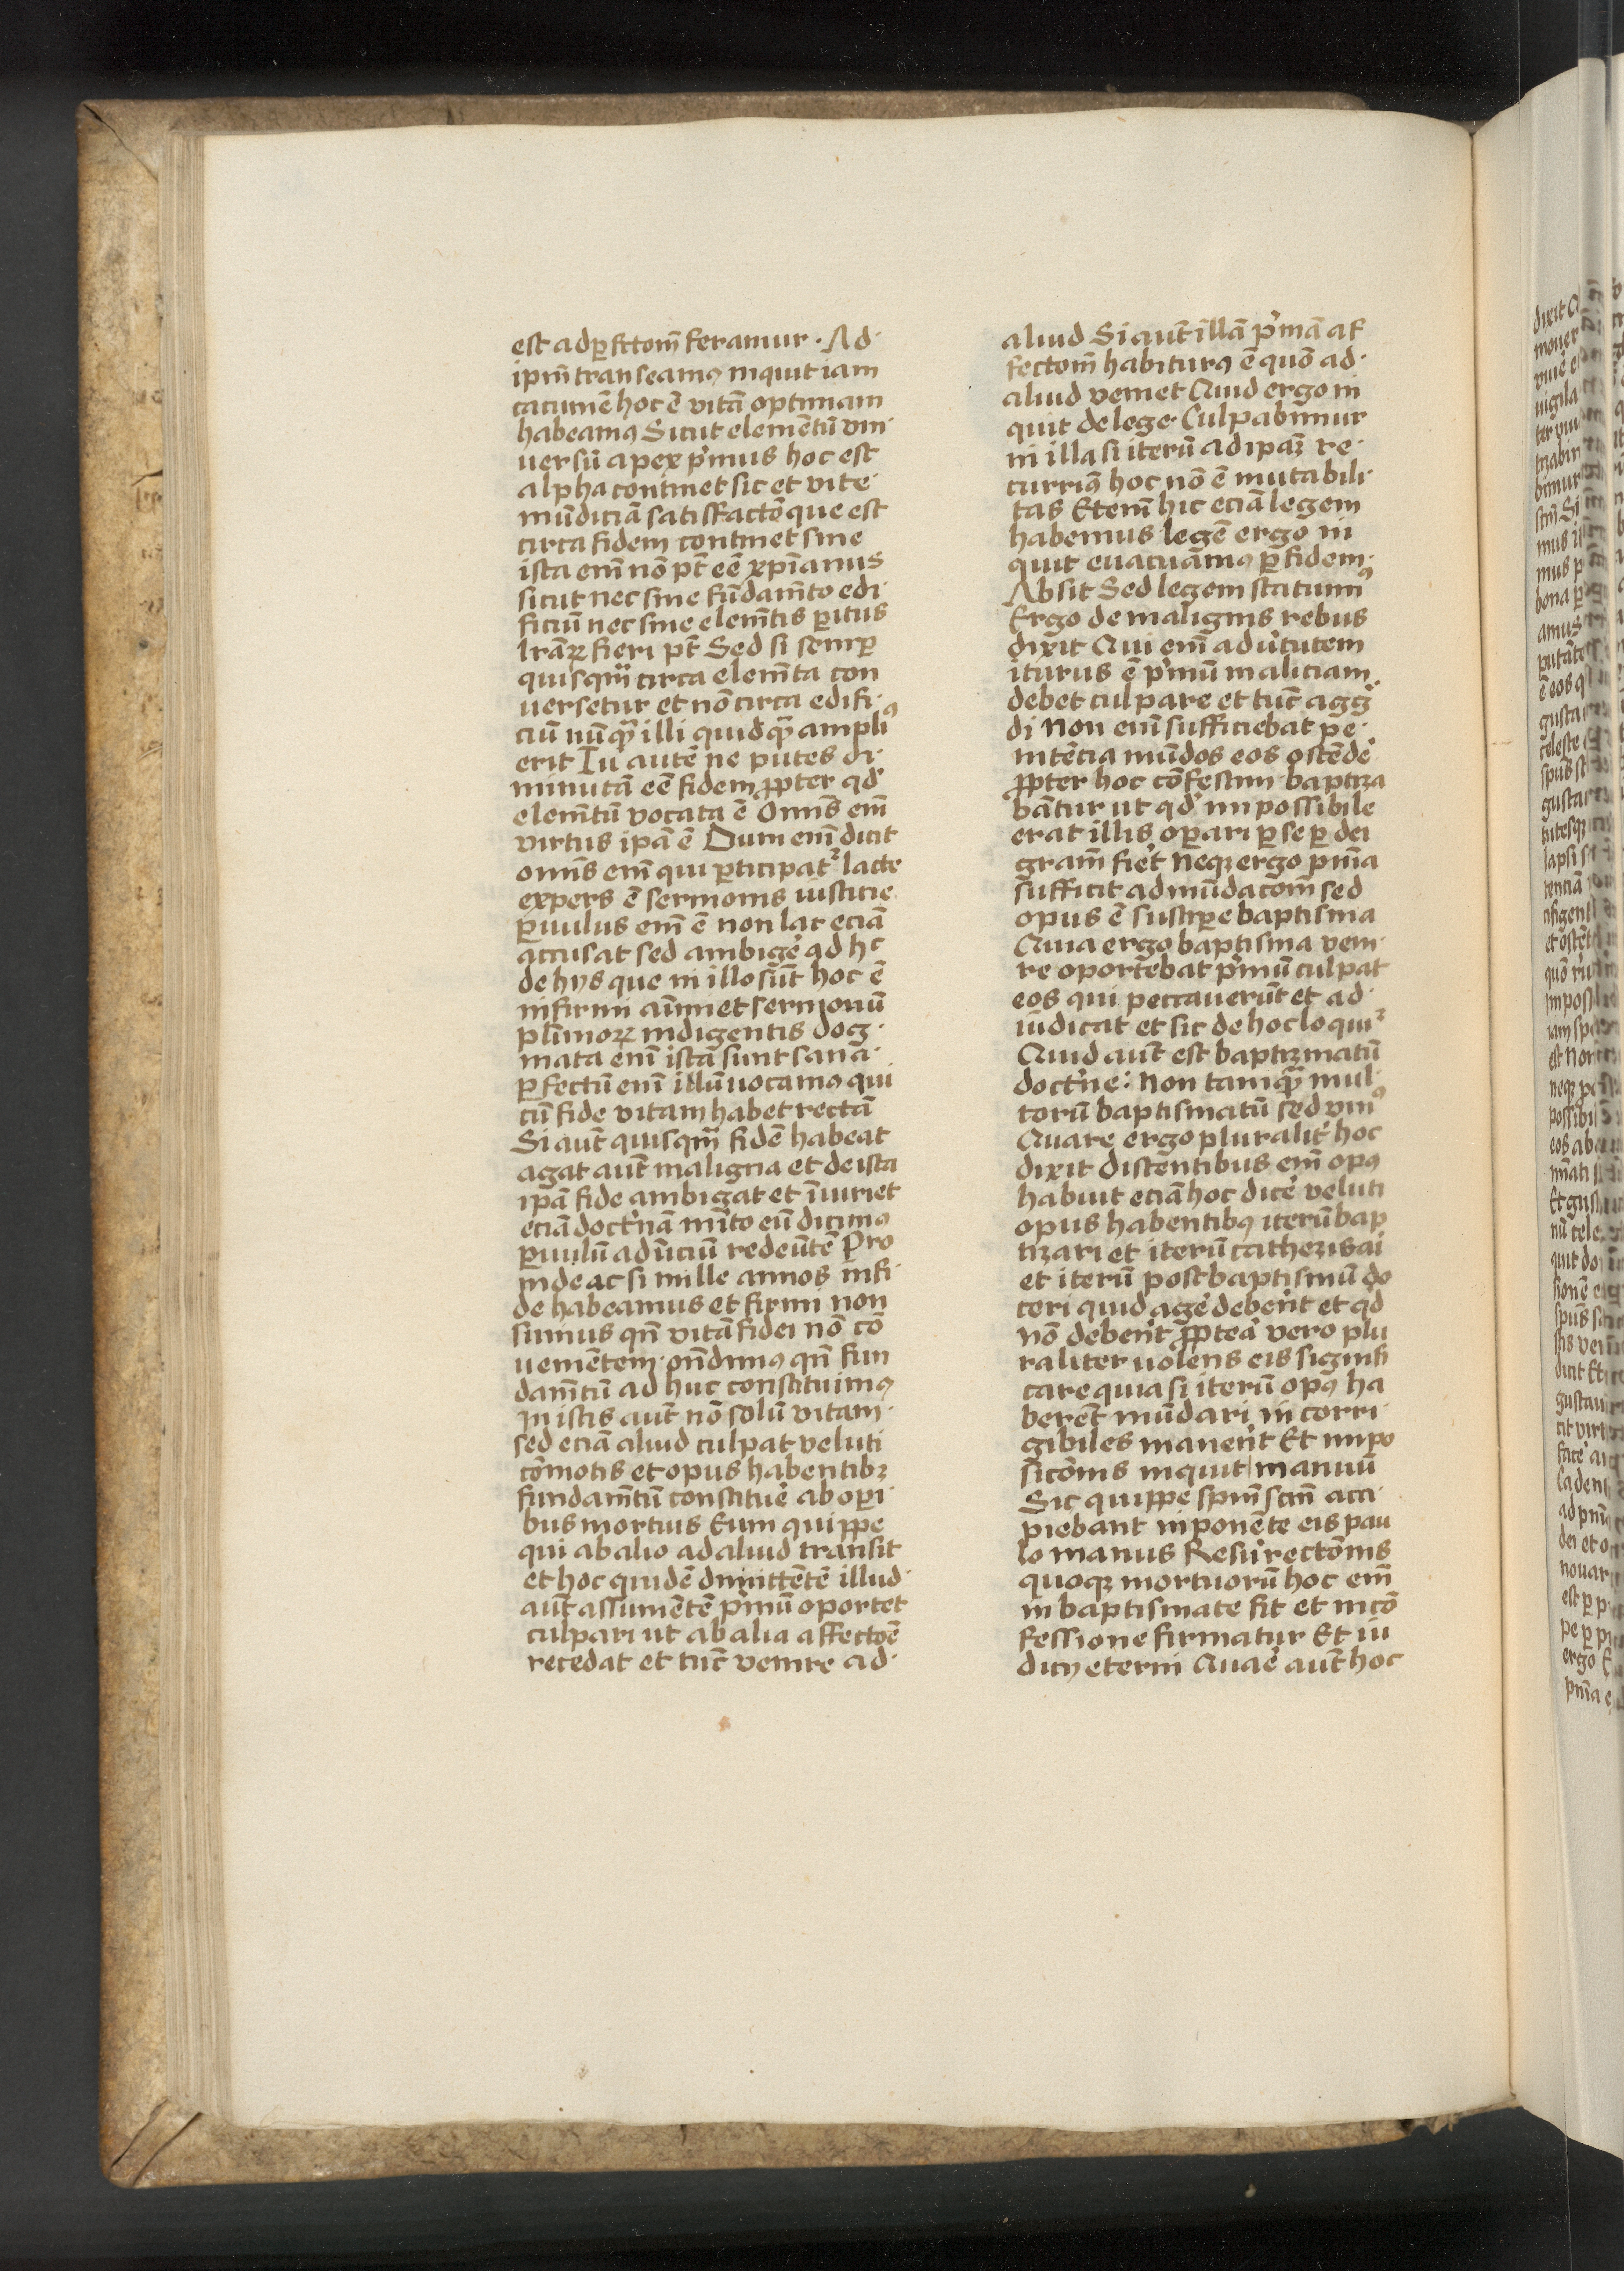 est ad ꝑfcto̅m feramur · Ad·
ip̅m transeamꝰ inquit iam
cacume̅ hoc e̅ vita̅ optimam
habeamꝰ Sicut eleme̅tu̅ vni·
uersu̅ apex p̓mus hoc est
alpha continet sic et vite·
mu̅dicia̅ satisfacto̅que est
circa fidem continet sine
ista em̅ no̅ pt̅ ee̅ xp̅ianus
sicut nec sine fu̅dam̅to edi·
ficiu̅ nec sine elem̅tis ꝑitus
lr̅aꝝ fieri pt̅ Sed si semꝑ
quisqm̅ circa elem̅ta con
uersetur et no̅ circa edifi·
ciu̅ nu̅qꝫ illi quidqꝫ ampliꝰ
erit Tu aute̅ ne putes di·
minuta̅ ee̅ fidem ꝓpter qd̓
elem̅tu̅ vocata e̅ Omn̅s em̅
virtus ip̅a e̅ Dum em̅ dicit
omn̅s em̅ qui ꝑticipat᷑ lacte
expers e̅ sermonis iusticie
ꝑuulus em̅ e̅ non lac ecia̅
accusat sed ambige̓ ad hc
de hijs que in illo su̅t hoc e̅
infirmi a̅imi et sermonu̅
pl̅imoꝝ indigentis dog·
mata em̅ ista sunt sana·
ꝑfectu̅ em̅ illu̅ uocamꝰ qui
cu̅ fide vitam habet recta̅
Si aut̅ quisqm̅ fide̅ habeat
agat aut̅ maligna et de ista
ip̅a fide ambigat et i̅iuriet
ecia̅ doct̓na̅ m̅ito eu̅ dicimꝰ
ꝑuulu̅ ad i̅iciu̅ redeu̅te̅ Pro
inde ac si mille annos in fi·
de habeamus et firmi non
simus qn̅ vita̅ fidei no̅ co̅
uenie̅tem on̅dimꝰ qn̅ fun
dam̅tu̅ ad huc constituimꝰ
In istis aut̅ no̅ solu̅ vitam·
sed ecia̅ aliud culpat veluti
co̅motis et opus habentibꝫ
fundam̅tu̅ constitue̓ ab oꝑi·
bus mortuis Eum quippe
qui ab alio ad aliud transit
et hoc quide̅ dimitte̅te̅ illud·
aut̅ assume̅te̅ p̓mu̅ oportet
culpari ut ab alia affecto̅e
recedat et tu̅c venire ad·
aliud Si aut̅ illa̅ p̓ma̅ af
fecto̅m habiturꝰ e̅ quo̅ ad·
aliud veniet Quid ergo in
quit de lege Culpabimur
in illa si iteru̅ ad ip̅aꝫ re·
curriꝰ hoc no̅ e̅ mutabili·
tas Eteni̅ hic ecia̅ legem
habemus lege̅ ergo in
quit euacuamꝰ ꝑ fidem·
Absit Sed legem statuimꝰ
Ergo de malignis rebus
dixit Qui em̅ ad v̓tutem
iturus e̅ p̓mu̅ maliciam·
debet culpare et tu̅c agg̓
di Non em̅ sufficiebat pe·
nite̅cia mu̅dos eos oste̅de̓
ꝓpter hoc co̅festim baptiza
ba̅tur ut qd̓ impossibile
erat illis oꝑari ꝑ se ꝑ dei
gram̅ fie̓t Neqꝫ ergo pn̅ia
sufficit ad mu̅daco̅m sed
opus e̅ susciꝑe baptisma
Quia ergo baptisma veni·
re oportebat p̓mu̅ culpat
eos qui peccaueru̅t et ad·
iudicat et sic de hoc loqui᷑
Quid aut̅ est baptizmatu̅
doct̓ne: Non tamqꝫ mul·
toru̅ baptismatu̅ sed vniꝰ
Quare ergo pluralit̓ hoc
dixit disce̅ntibus em̅ opꝰ
habuit ecia̅ hoc dice̓ veluti
opus habentibꝰ iteru̅ bap
tizari et iteru̅ cathezizai
et iteru̅ post baptismu̅ do
ceri quid age̓ debe̓nt et qd̓
no̅ debe̓nt ꝓptea̓ vero plu
raliter uolens eis signifi
care quia si iteru̅ opꝰ ha
bere̅t mu̅dari in corri·
gibiles mane̓nt Et impo
sico̅nis inquit manuu̅
Sic quippe spm̅ scm̅ acci·
piebant inpone̅te eis pau
lo manus Resu̓recto̅nis
quoqꝫ mortuoru̅ hoc em̅
in baptismate fit et in co̅
fessione firmatur Et iu
dicij eterni Qua̓e aut̅ hoc